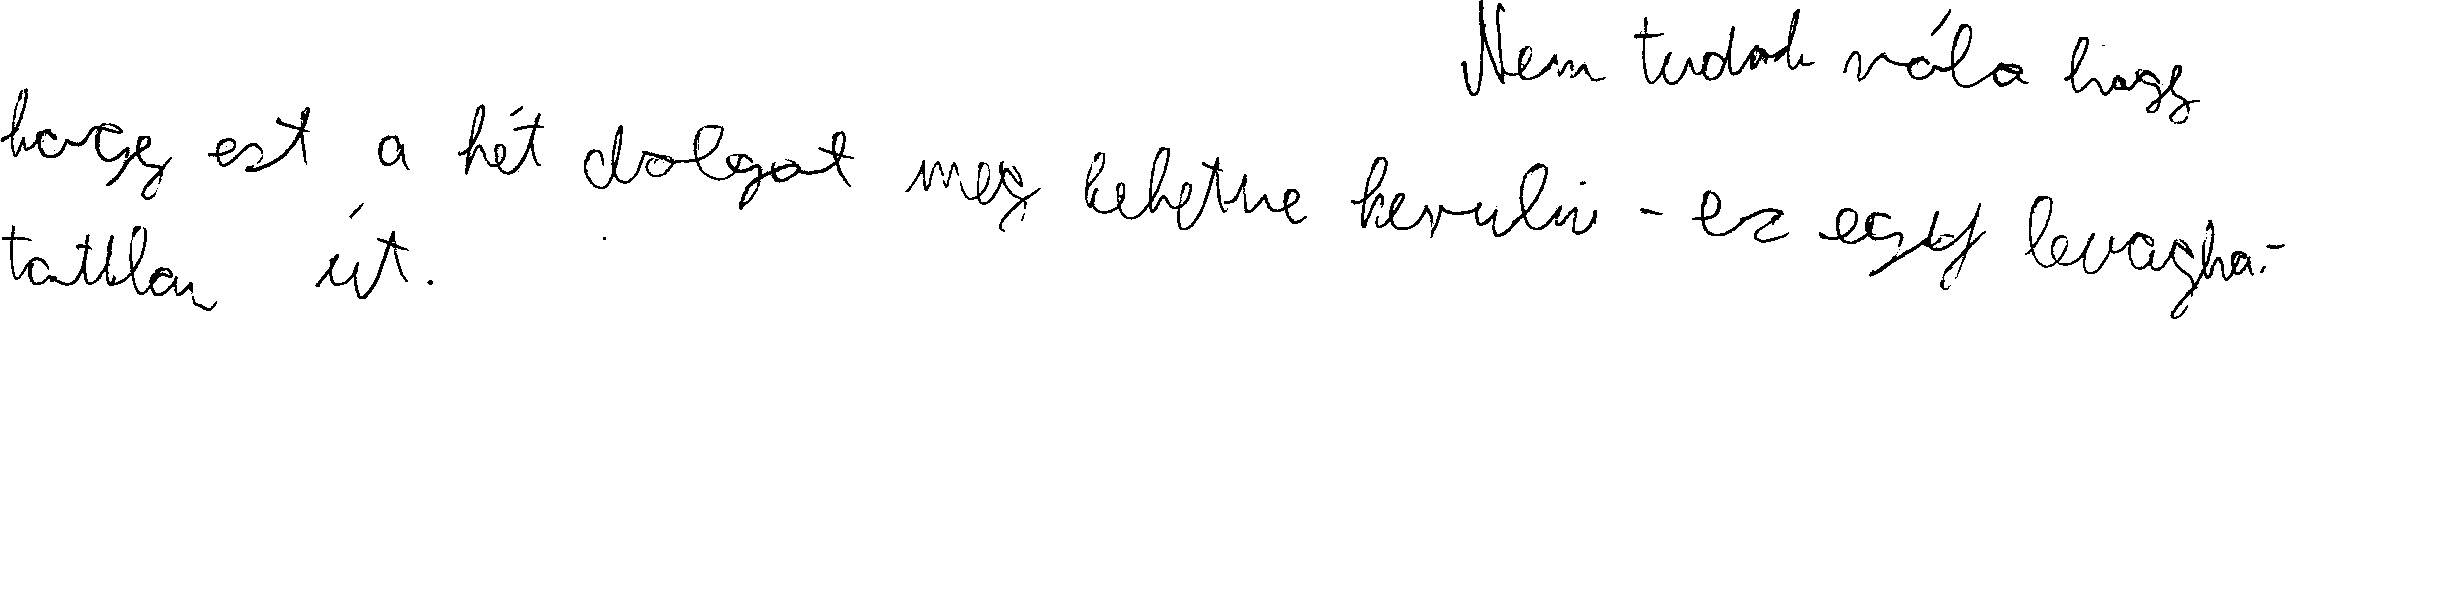 Nem tudok róla hogy
hogy ezt a hét dolgot meg lehetne kerulni - ez egy levagha-
tatlan út.